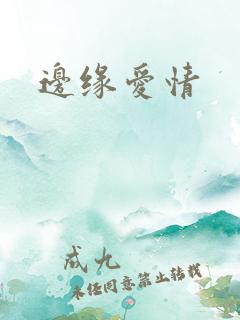 邊缘愛情
成九
未经同意禁止转载